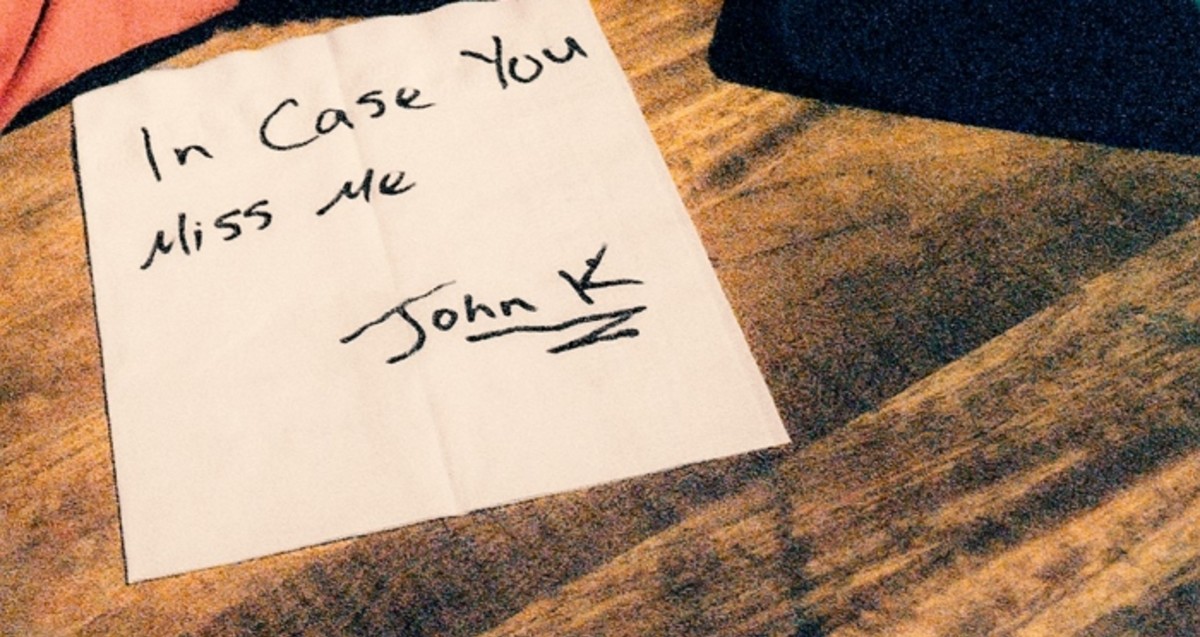 In Case You
Miss Me
John K